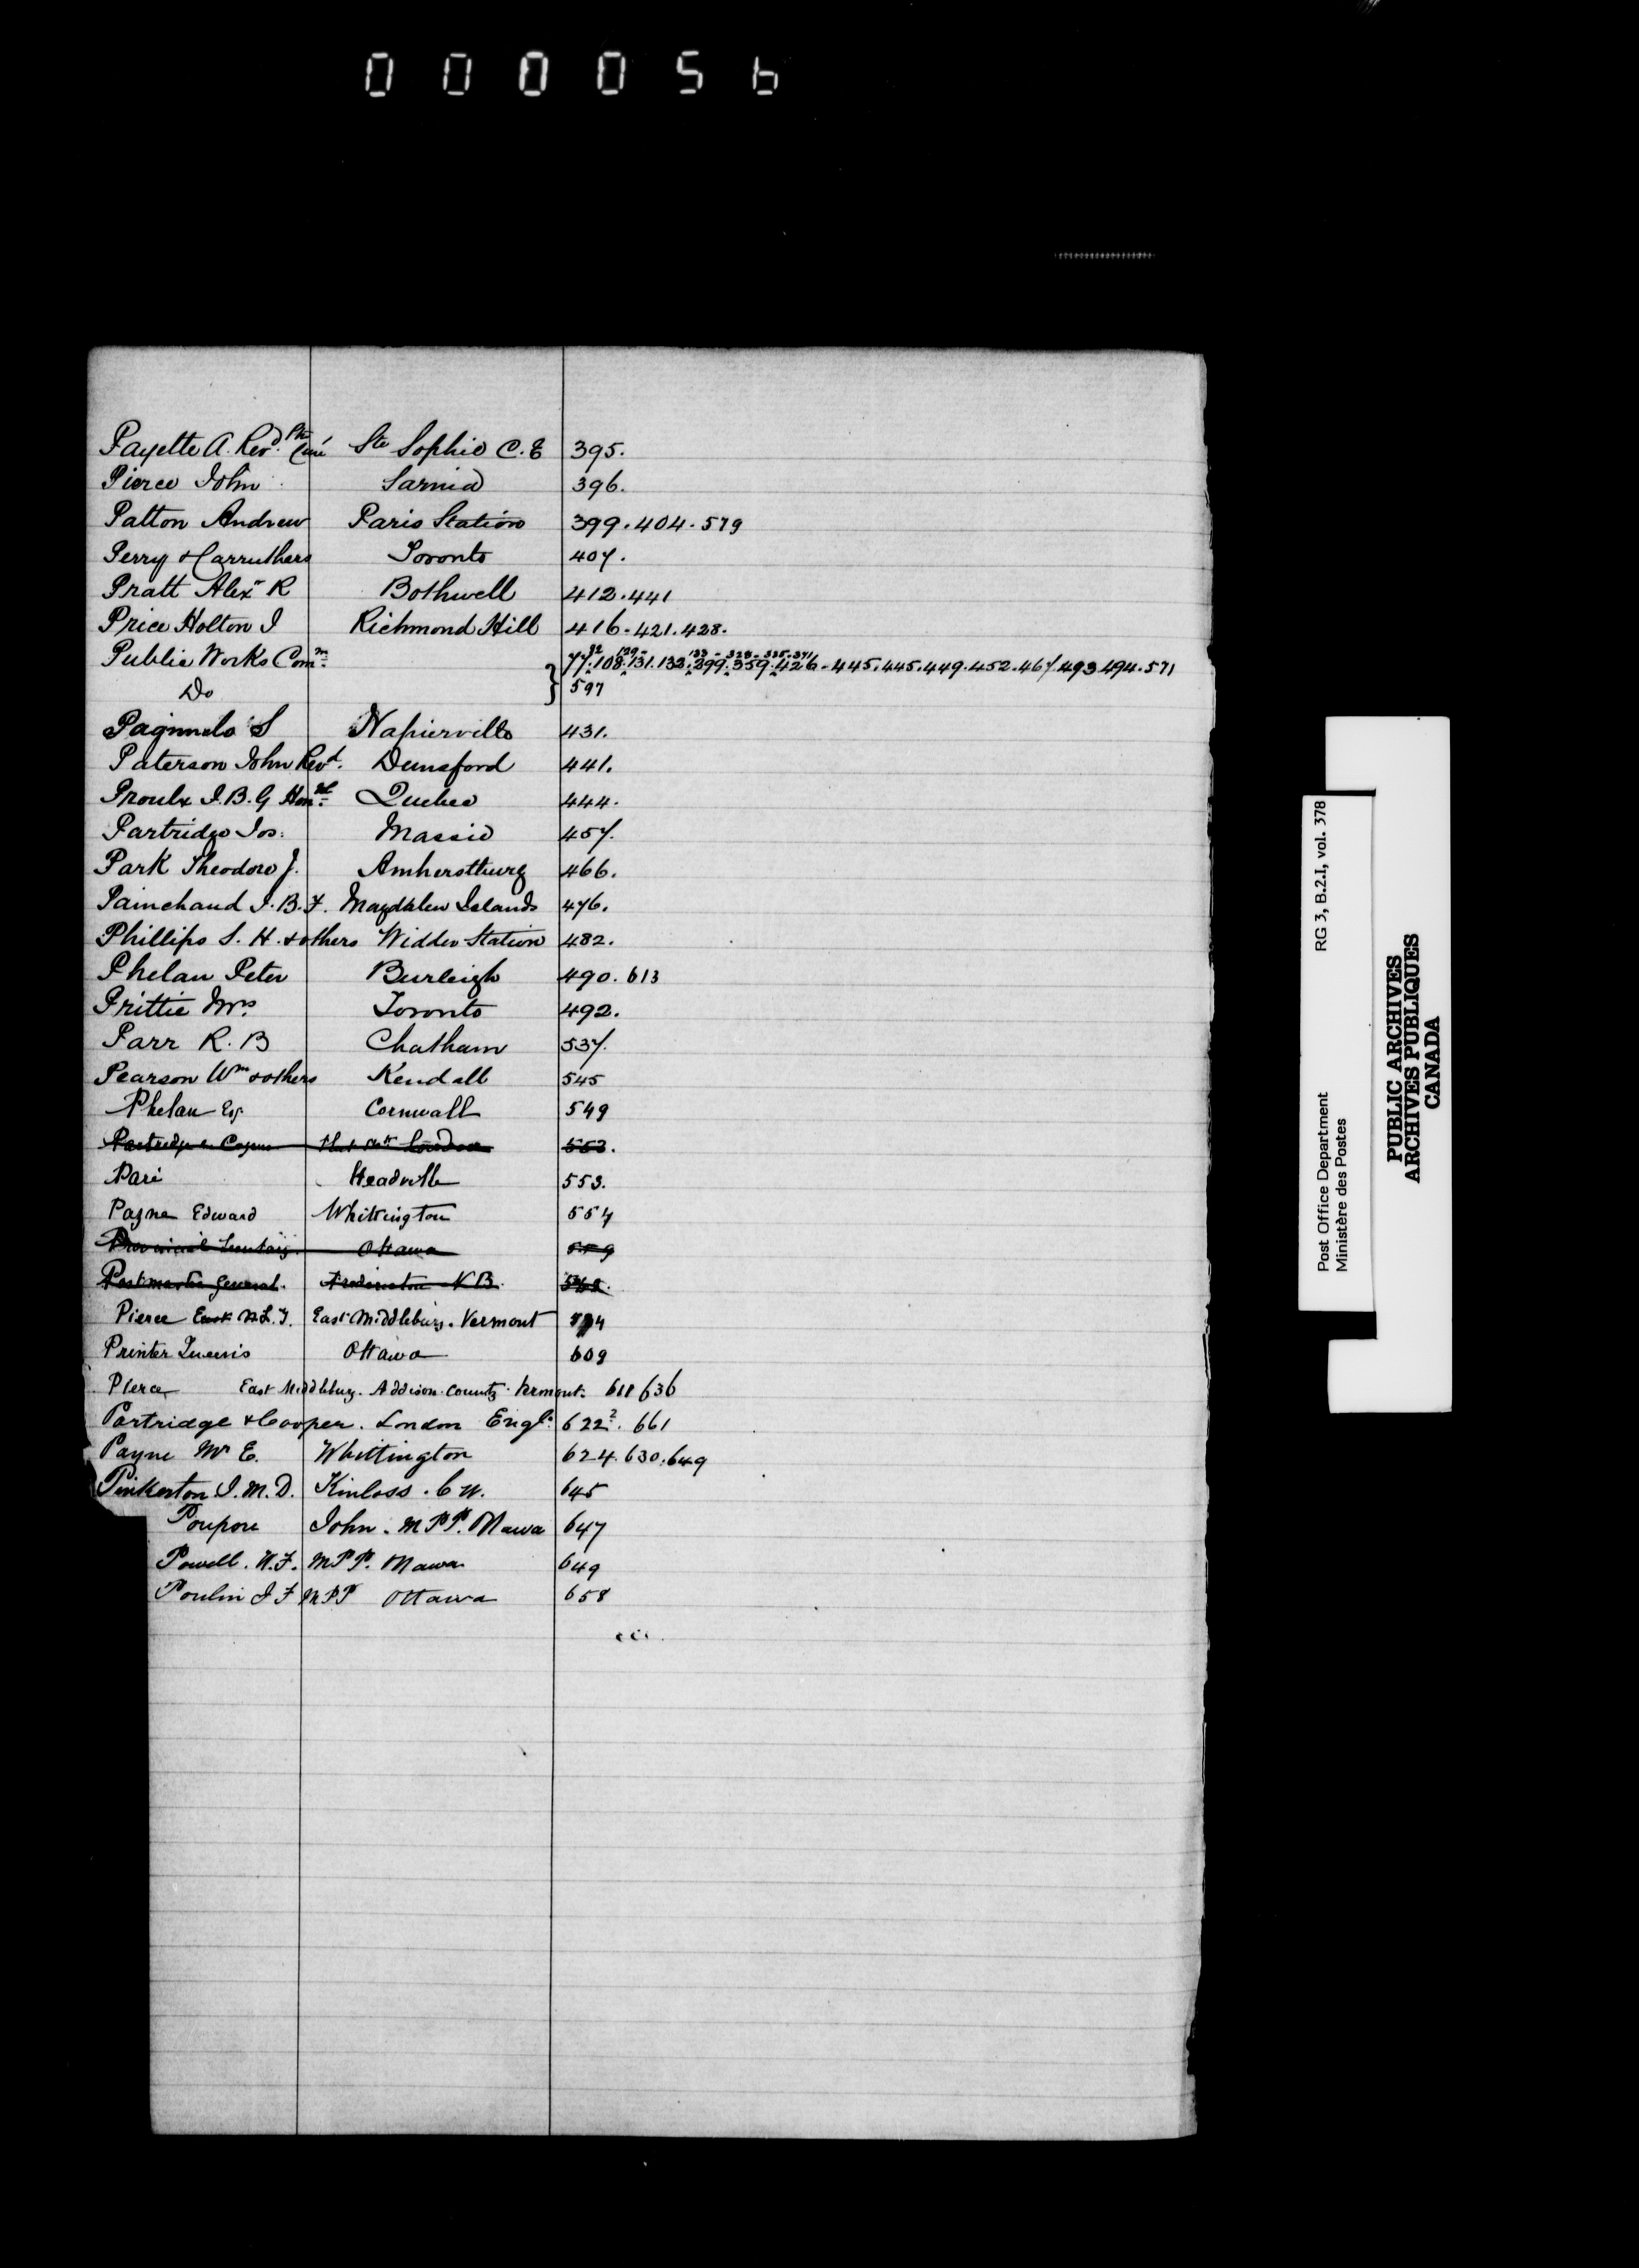 000056
Payette A. Revd. Ptre Curé Ste Sophie C.E 395.
Pierce John Sarnia 396.
Patton Andrew Paris Station 399.404.579
Perry & Carruthers Toronto 407.
Pratt Alexr R Bothwell 412.441
Price Holton I Richmond Hill 416-421.428.
Public Works Comm 77.92.108.129-131.132.133-299.328-335.359.371.426-445.445.449.452.467.493 494.571
Do 597
Pagnuelo S Napierville 431.
Paterson John Revd. Dunsford 441.
Proulx J.B.G Honble Quebec 444.
Partridge Jos: Massie 457.
Park Theodore J. Amherstburg 466.
Painchaud J.B.F. Magdalen Islands 476.
Phillips S. H. & others Widder Station 482.
Phelan Peter Burleigh 490.613
Prittie Mrs Toronto 492.
Parr R.B Chatham 537.
Pearson Wm & others Kendall 545
Phelan Esq. Cornwall 549
Partridge & London 553.
Paré Headville 553.
Payne Edward Whittington 554
Provincial Secretary Ottawa 559
Postmaster General. Fredericton N.B.
Pierce East N.L.T. East Middlebury. Vermont
Printer Queen's Ottawa 609
Pierce East Middlebury. Addison County Vermont. 618 636
Partridge & Cooper. London Engld. 622². 661
Payne Mr E. Whittington 624.630.649
Pinkerton J.M.D. Kinloss. C W. 645
Poupore John. M P P. Ottawa 647
Powell. W.F. M P P. Ottawa 649
Poulin J F M P P Ottawa 658
Post Office Department RG 3, B.2.I, vol. 378
Ministère des Postes
PUBLIC ARCHIVES
ARCHIVES PUBLIQUES
CANADA